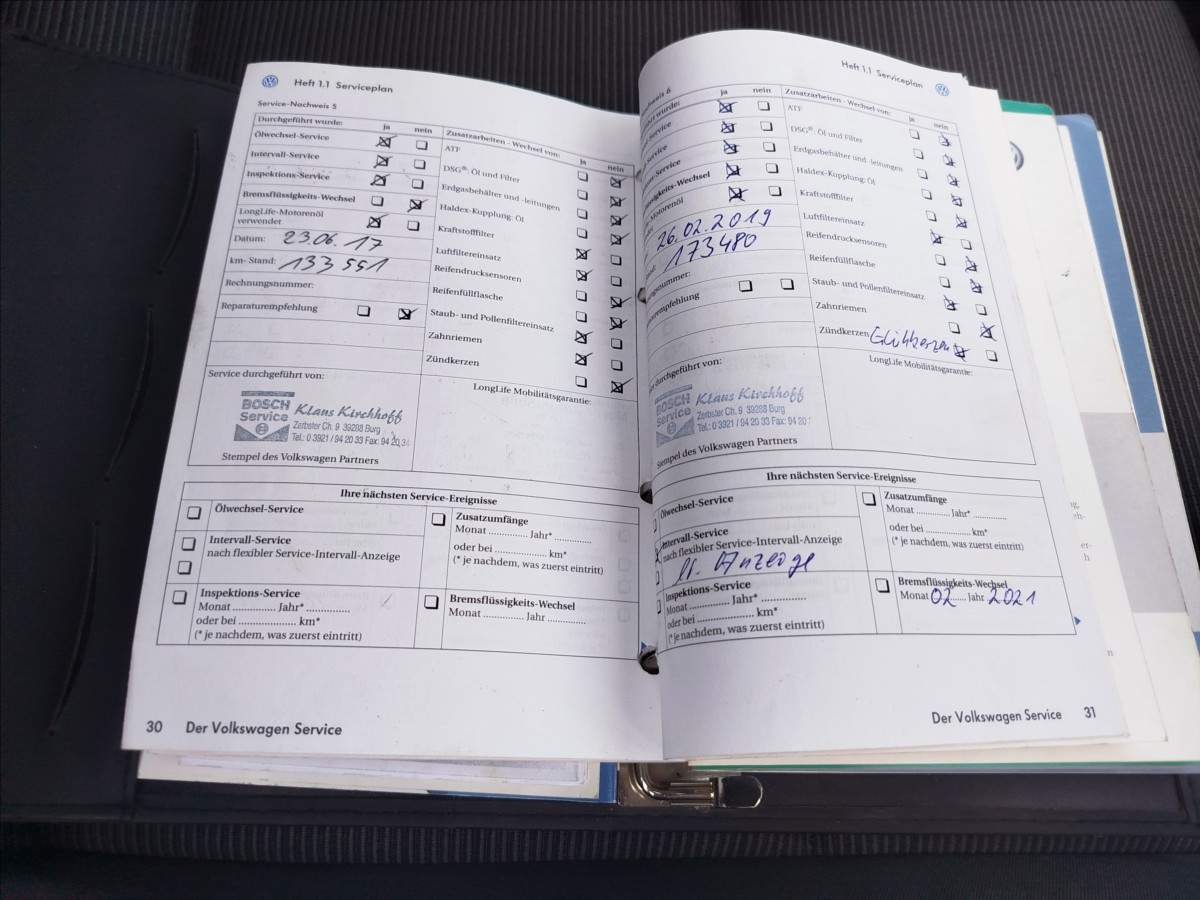 Heft 1.1 Serviceplan
Service-Nachweis 5
Durchgeführt wurde: ja nein
Ölwechsel-Service
Intervall-Service
Inspektions-Service
Bremsflüssigkeits-Wechsel
LongLife-Motorenöl
verwendet
Datum: 23.06.17
km- Stand: 133 551
Rechnungsnummer:
Reparaturempfehlung
Zusatzarbeiten - Wechsel von: ja nein
ATF
DSG®: Öl und Filter
Erdgasbehälter und -leitungen
Haldex-Kupplung: Öl
Kraftstofffilter
Luftfiltereinsatz
Reifendrucksensoren
Reifenfüllflasche
Staub- und Pollenfiltereinsatz
Zahnriemen
Zündkerzen
Service durchgeführt von:
LongLife Mobilitätsgarantie:
BOSCH
Service
Klaus Kirchhoff
Zerbster Ch. 9 39288 Burg
Tel.: 0 3921 / 94 20 33 Fax: 94 20 34
Stempel des Volkswagen Partners
Ihre nächsten Service-Ereignisse
Ölwechsel-Service
Intervall-Service
nach flexibler Service-Intervall-Anzeige
Inspektions-Service
Monat ............. Jahr* ..............
oder bei .................... km*
(* je nachdem, was zuerst eintritt)
Zusatzumfänge
Monat ............. Jahr* .............
oder bei .................. km*
(* je nachdem, was zuerst eintritt)
Bremsflüssigkeits-Wechsel
Monat ............. Jahr .............
30 Der Volkswagen Service
Heft 1.1 Serviceplan
hweis 6
hrt wurde: ja nein
Service
Service
Service
ssigkeits-Wechsel
Motorenöl
26.02.2019
173480
ngsnummer:
turempfehlung
Zusatzarbeiten - Wechsel von: ja nein
ATF
DSG®: Öl und Filter
Erdgasbehälter und -leitungen
Haldex-Kupplung: Öl
Kraftstofffilter
Luftfiltereinsatz
Reifendrucksensoren
Reifenfüllflasche
Staub- und Pollenfiltereinsatz
Zahnriemen
Zündkerzen Glühkerzen
durchgeführt von:
LongLife Mobilitätsgarantie:
BOSCH
Service
Klaus Kirchhoff
Zerbster Ch. 9 39288 Burg
Tel.: 0 3921 / 94 20 33 Fax: 94 20
Stempel des Volkswagen Partners
Ihre nächsten Service-Ereignisse
Ölwechsel-Service
Intervall-Service
nach flexibler Service-Intervall-Anzeige
lt. Anzeige
Inspektions-Service
Monat ............. Jahr* ..............
oder bei .................... km*
(* je nachdem, was zuerst eintritt)
Zusatzumfänge
Monat ............. Jahr* .............
oder bei .................. km*
(* je nachdem, was zuerst eintritt)
Bremsflüssigkeits-Wechsel
Monat 02 Jahr 2021
Der Volkswagen Service 31